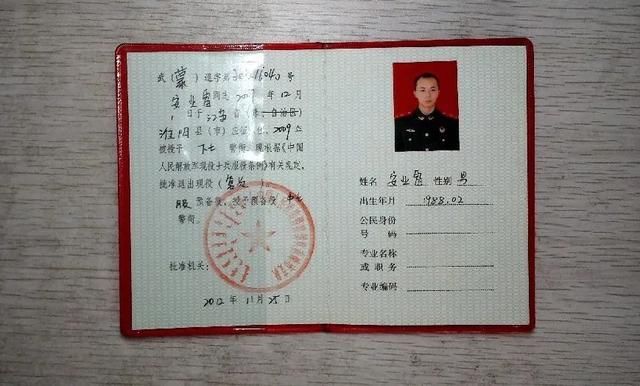 武(蒙)退字第 号
安业 同志 2007 年 12 月
1 日于 省(市、自治区)
县(市)应征入伍, 2009 年
被授予 下士 警衔,现根据《中国
人民解放军现役士兵服役条例》有关规定,
批准退出现役(复员)。
服 预备役,授予预备役 中士
警衔。
批准机关:
2012 年 11 月 25 日
姓名 安业 性别 男
出生年月 1988.02
公民身份
号码
专业名称
或职务
专业编码